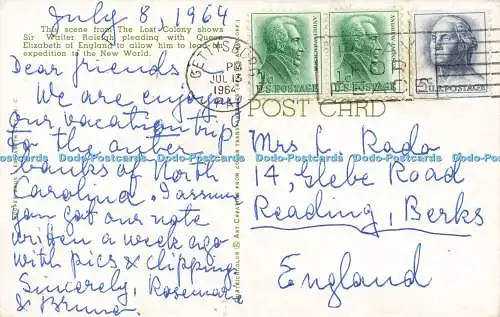 July 8, 1964
This scene from The Lost Colony shows
Sir Walter Raleigh pleading with Queen
Elizabeth of England to allow him to lead an
expedition to the New World.
Dear friends
We are enjoying
our vacation trip
to the outer
banks of North
Carolina. I assume
you got our note
written a week ago
with pics & clipping
Sincerely, Rosemarie
& Bruno
GETTYSBURG
PM
JUL 13
1964
PA.
1¢
U.S. POSTAGE
1¢
U.S. POSTAGE
5¢
U.S. POSTAGE
POST CARD
Mrs L. Rada
14, Glebe Road
Reading, Berks
England
Dodo-Postcards Dodo-Postcards Dodo-Postcards Dodo-Postcards Dodo-Postcards